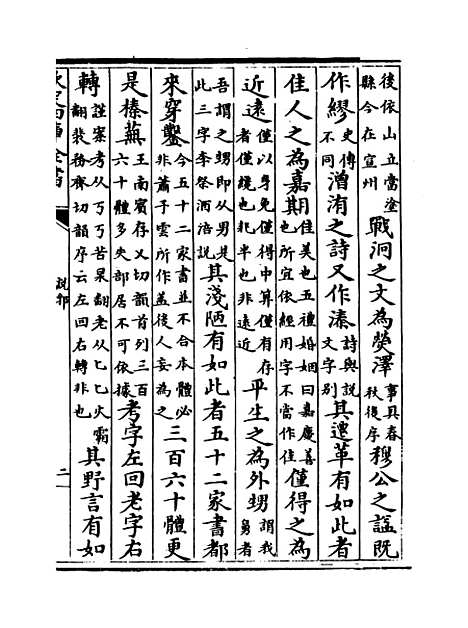 後依山立當塗縣今在宣州戰泂之文為熒澤事具春秋後序穆公之諡既
作繆史傳不同潧洧之詩又作溱詩與説文字別其遷革有如此者
佳人之為嘉期佳美也五禮婚姻曰嘉慶善也所宜依經用字不當作佳僅得之為
近遠僅以身免僅得中算僅有存者僅纔也非半也非遠近平生之為外甥謂我舅者
吾謂之甥即从男是此三字李祭酒涪説其淺陋有如此者五十二家書都
來穿鑿今五十二家書並不合本體必非蕭子雲所作蓋後人妄為之三百六十體更
是榛蕪王南賓存乂切韻首列三百六十體多失部居不可依據考字左回老字右
轉謹案考从丂丂苦杲翻老从匕匕火霸翻裴務齊切韻序云左回右轉非也其野言有如
欽定四庫全書
説郛
二